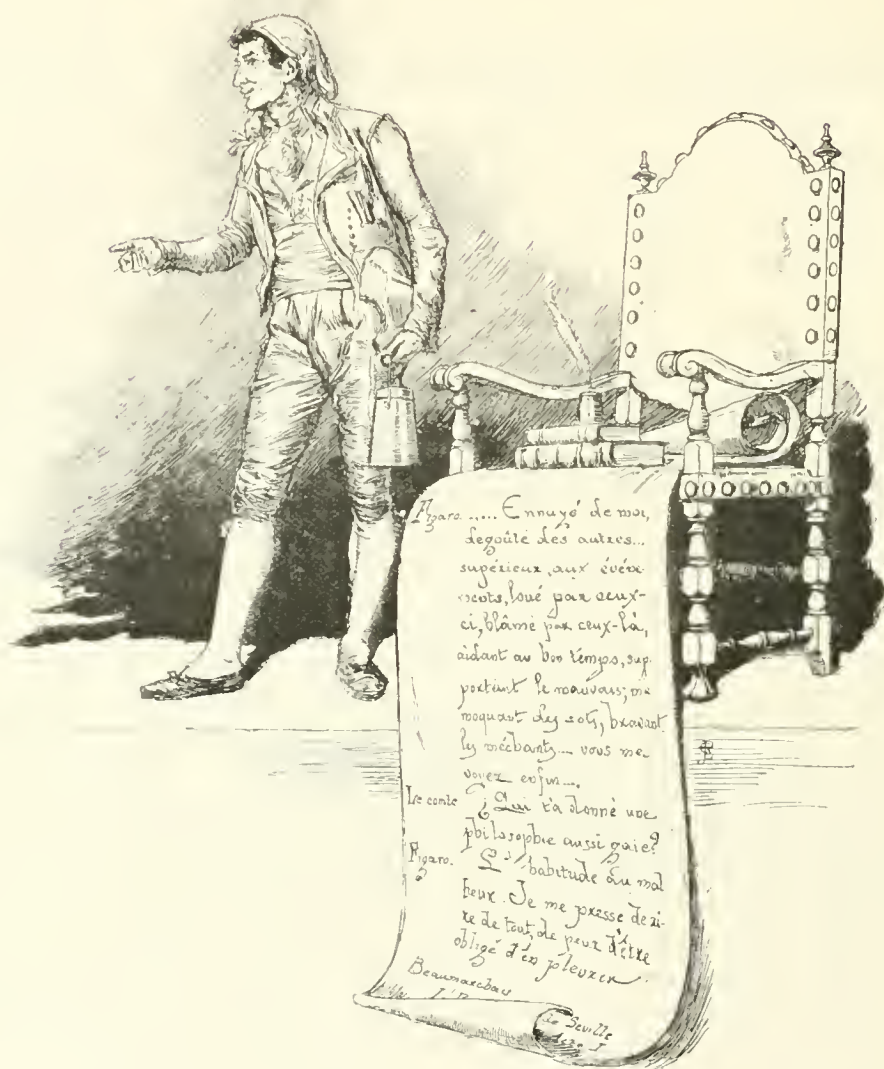 Figaro...... Ennuyé de moi,
degoûté des autres...
supérieur, aux événe-
ments, loué par ceux-
ci, blâmé par ceux-là,
aidant au bon temps, sup-
portant le mauvais; me
moquant des sots, bravant
les méchants... vous me
voyez enfin...
Le comte ¿ Qui t'a donné une
philosophie aussi gaie?
Figaro. L'habitude du mal
heur. Je me presse de ri-
re de tout, de peur d'être
obligé d'en pleurer.
Beaumarchais
de Seville
I